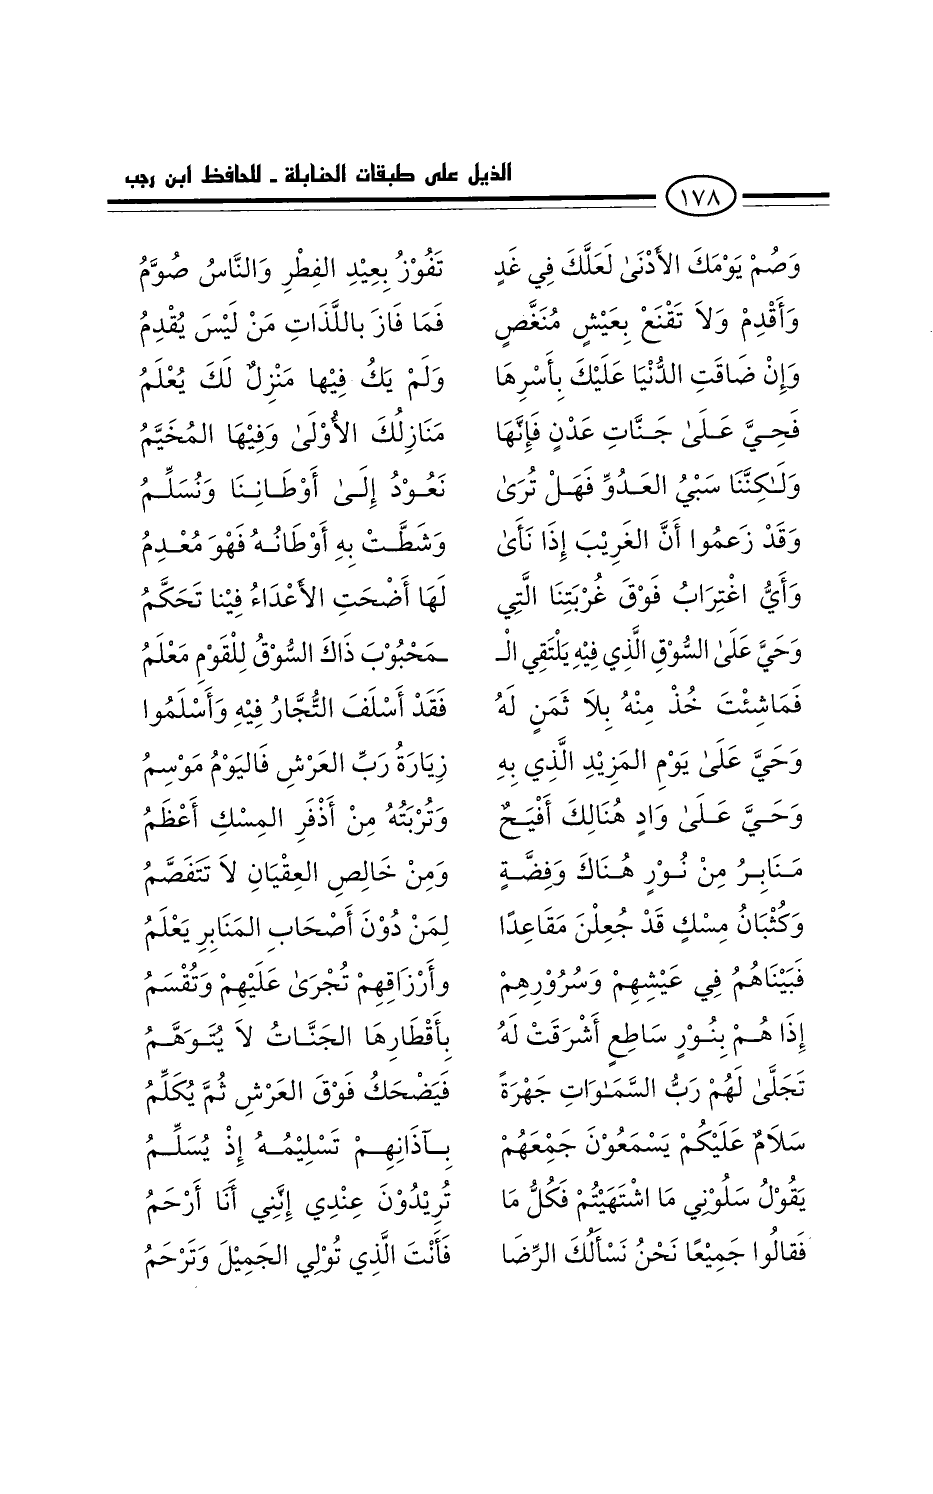 الذيل على طبقات الحنابلة ـ للحافظ ابن رجب
١٧٨
وَصُمْ يَوْمَكَ الأَدْنَىٰ لَعَلَّكَ فِي غَدٍ تَفُوْزُ بِعِيْدِ الفِطْرِ وَالنَّاسُ صُوَّمُ
وَأَقْدِمْ وَلاَ تَقْنَعْ بِعَيْشٍ مُنَغَّصٍ فَمَا فَازَ بِاللَّذَاتِ مَنْ لَيْسَ يُقْدِمُ
وَإِنْ ضَاقَتِ الدُّنْيَا عَلَيْكَ بِأَسْرِهَا وَلَمْ يَكُ فِيْهَا مَنْزِلٌ لَكَ يُعْلَمُ
فَحِيَّ عَلَىٰ جَنَّاتِ عَدْنٍ فَإِنَّهَا مَنَازِلُكَ الأُوْلَىٰ وَفِيْهَا المُخَيَّمُ
وَلَـٰكِنَّنَا سَبْيُ العَدُوِّ فَهَلْ تُرَىٰ نَعُوْدُ إِلَىٰ أَوْطَانِنَا وَنُسَلِّمُ
وَقَدْ زَعَمُوا أَنَّ الغَرِيْبَ إِذَا نَأَىٰ وَشَطَّتْ بِهِ أَوْطَانُهُ فَهْوَ مُعْدِمُ
وَأَيُّ اغْتِرَابٌ فَوْقَ غُرْبَتِنَا الَّتِي لَهَا أَضْحَتِ الأَعْدَاءُ فِيْنَا تَحَكَّمُ
وَحَيَّ عَلَىٰ السُّوْقِ الَّذِي فِيْهِ يَلْتَقِي الْـ ـمَحْبُوْبَ ذَاكَ السُّوْقُ لِلْقَوْمِ مَعْلَمُ
فَمَاشِئْتَ خُذْ مِنْهُ بِلاَ ثَمَنٍ لَهُ فَقَدْ أَسْلَفَ التُّجَّارُ فِيْهِ وَأَسْلَمُوا
وَحَيَّ عَلَىٰ يَوْمِ المَزِيْدِ الَّذِي بِهِ زِيَارَةُ رَبِّ العَرْشِ فَاليَوْمُ مَوْسِمُ
وَحَيَّ عَلَىٰ وَادٍ هُنَالِكَ أَفْيَحٌ وَتُرْبَتُهُ مِنْ أَذْفَرِ المِسْكِ أَعْظَمُ
مَنَابِرُ مِنْ نُوْرٍ هُنَاكَ وَفِضَّةٍ وَمِنْ خَالِصِ العِقْيَانِ لاَ تَتَفَصَّمُ
وَكُثْبَانُ مِسْكٍ قَدْ جُعِلْنَ مَقَاعِدًا لِمَنْ دُوْنَ أَصْحَابِ المَنَابِرِ يَعْلَمُ
فَبَيْنَاهُمُ فِي عَيْشِهِمْ وَسُرُوْرِهِمْ وَأَرْزَاقِهِمْ تُجْرَىٰ عَلَيْهِمْ وَتُقْسَمُ
إِذَا هُمْ بِنُوْرٍ سَاطِعٍ أَشْرَقَتْ لَهُ بِأَقْطَارِهَا الجَنَّاتُ لاَ يُتَوَهَّمُ
تَجَلَّىٰ لَهُمْ رَبُّ السَّمَـٰوَاتِ جَهْرَةً فَيَضْحَكُ فَوْقَ العَرْشِ ثُمَّ يُكَلِّمُ
سَلاَمٌ عَلَيْكُمْ يَسْمَعُوْنَ جَمْعَهُمْ بِآذَانِهِمْ تَسْلِيْمُهُ إِذْ يُسَلِّمُ
يَقُوْلُ سَلُوْنِي مَا اشْتَهَيْتُمْ فَكُلُّ مَا تُرِيْدُوْنَ عِنْدِي إِنَّنِي أَنَا أَرْحَمُ
فَقَالُوا جَمِيْعًا نَحْنُ نَسْأَلُكَ الرِّضَا فَأَنْتَ الَّذِي تُوْلِي الجَمِيْلَ وَتَرْحَمُ